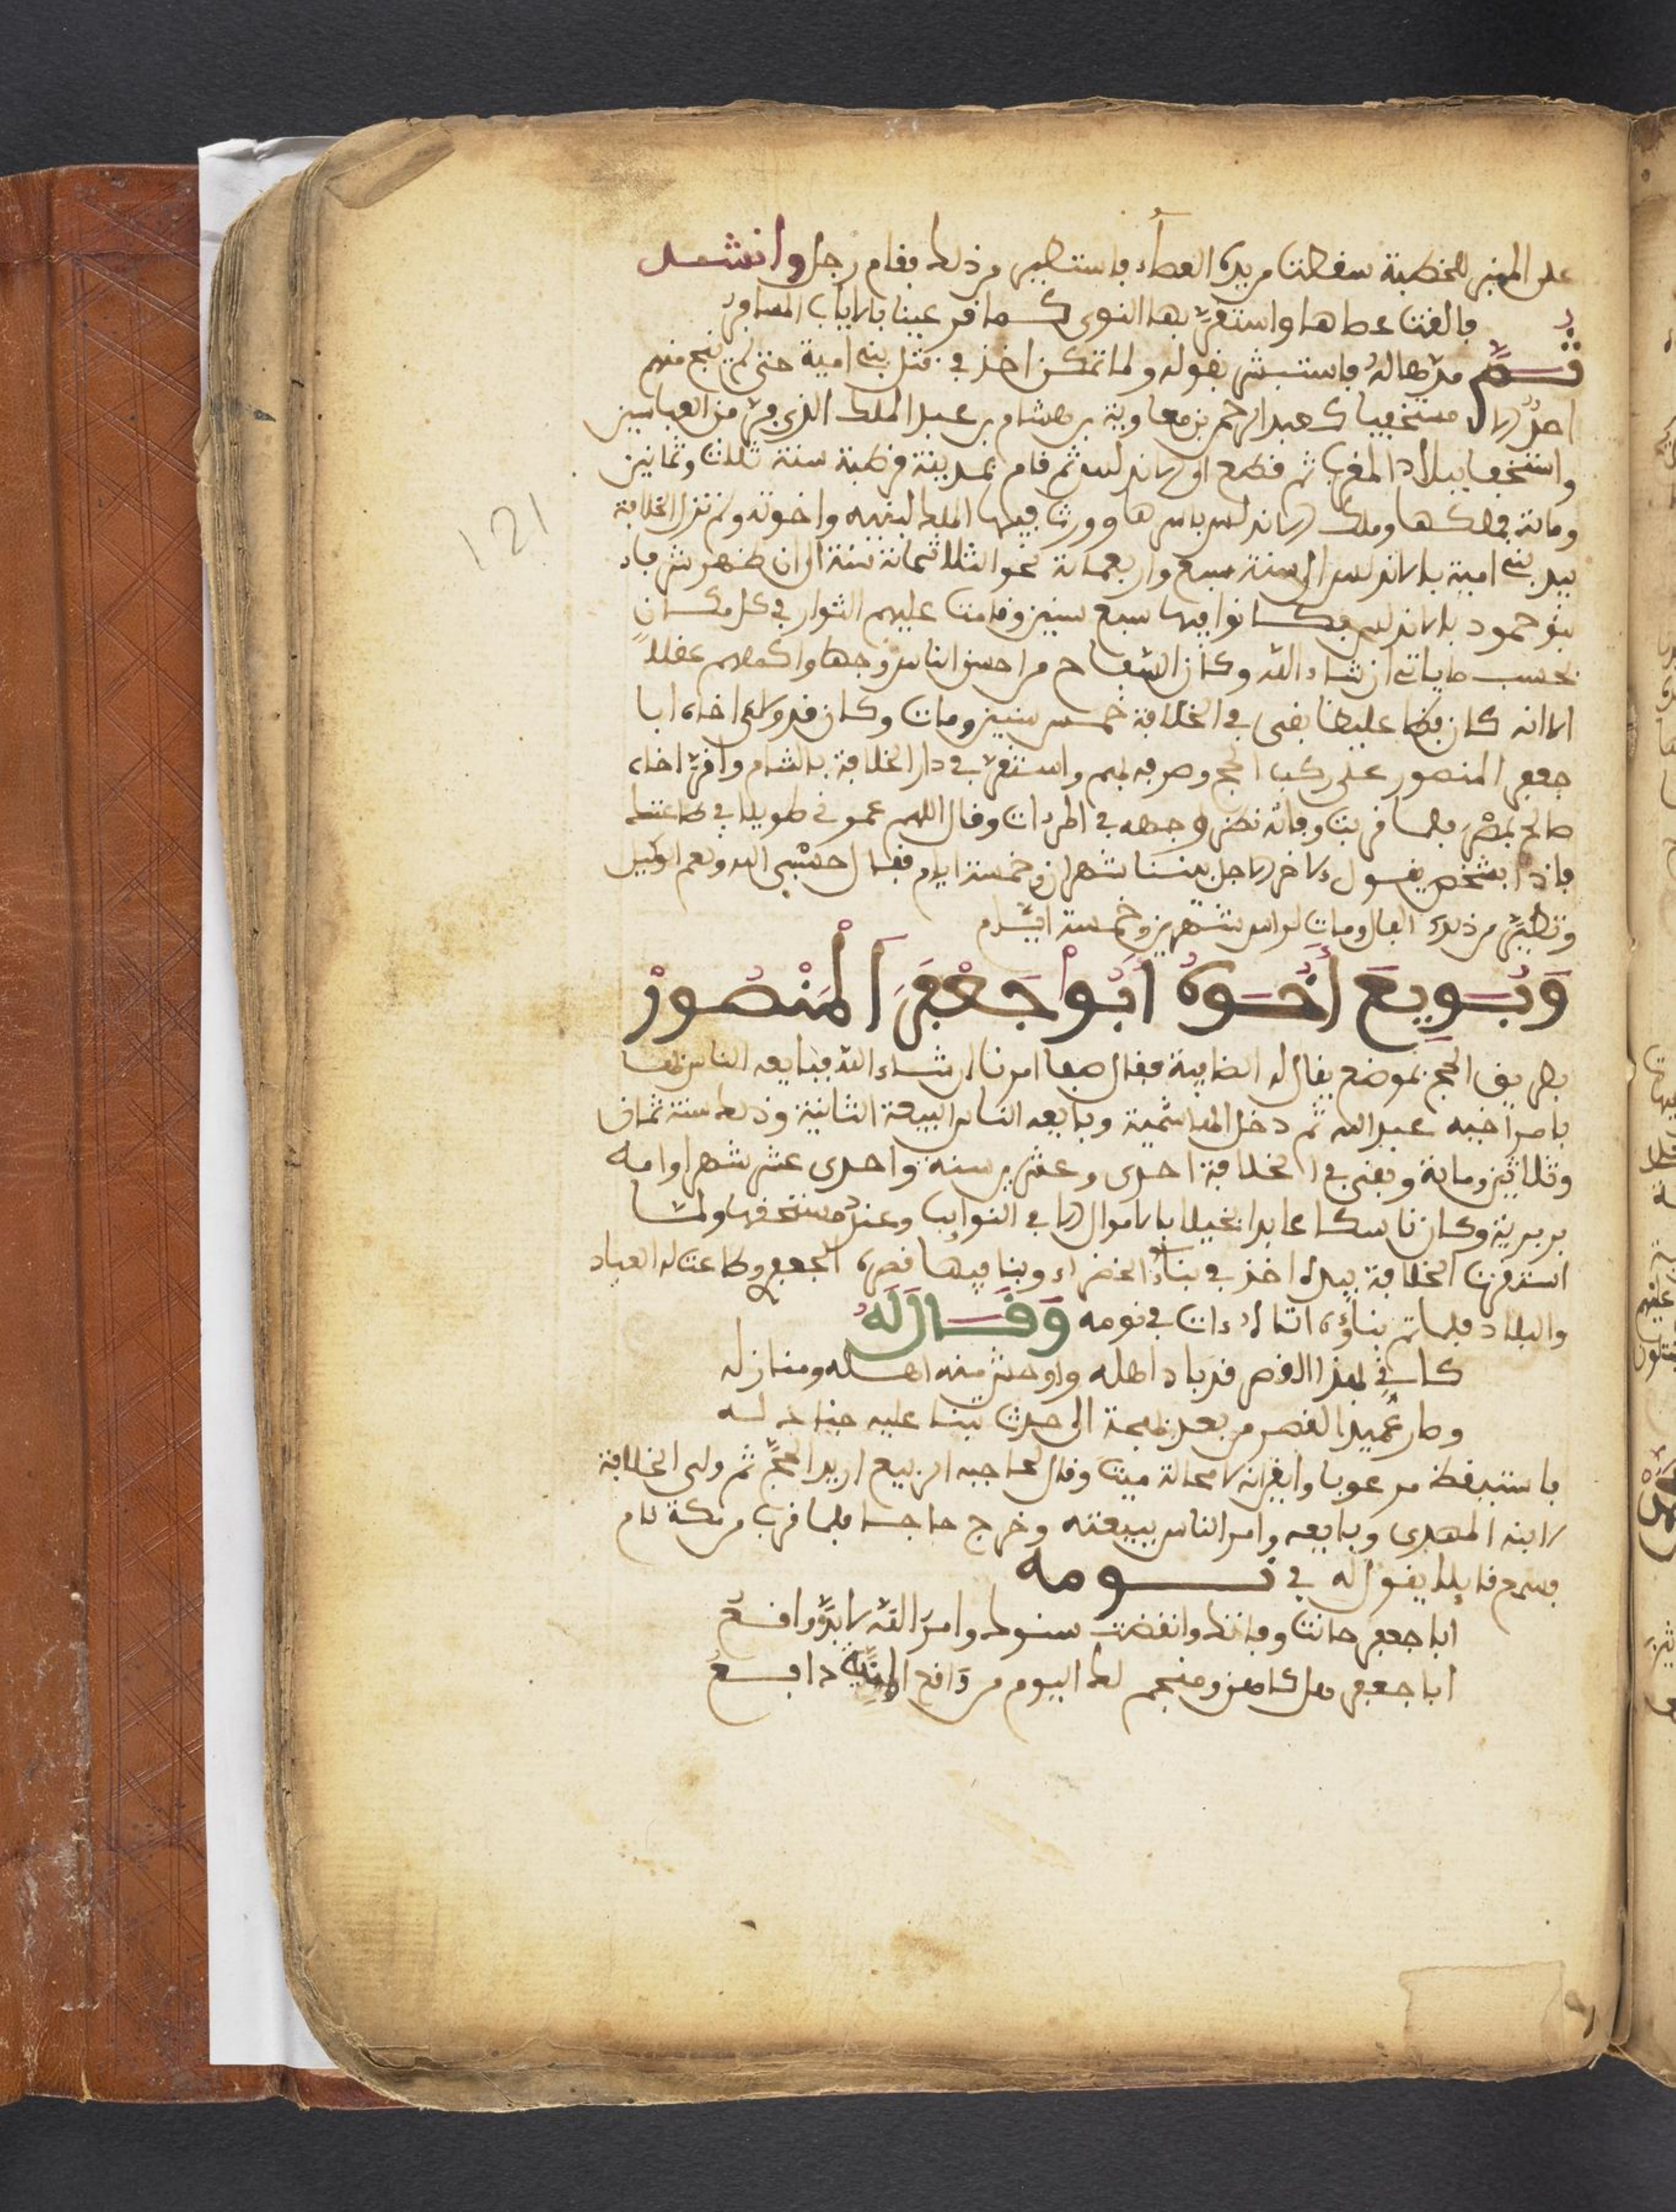 على المنبر للخطبة سقطت من يده العصاء فاستطير من ذلك فقام رجل وانشد
فالقت عصاها واستقر بها النوى كما قر عينا بالاياب المسافر
ثم مدها له فاستبشر بقوله ولما تمكن اخذ في قتل بني امية حتى لم ينج منهم
احد الا مستخفيا كعبد الرحمن بن معاوية بن هشام بن عبد الملك الذي فر من العباسيين
واستخفا ببلاد المغرب ثم قطع الى الاندلس ثم قام بمدينة قرطبة سنة ثلاث وثمانين
وماية فملكها وملك الاندلس باسرها وورث فيها الملك لبنيه واخوته ولم تزل الخلافة
بيد بني امية بالاندلس الى سنة سبع واربعماية نحو الثلاثماية سنة الى ان ظهر شرفاء
بنو حمود بالاندلس فكانوا فيها سبع سنين وقامت عليهم الثوار في كل مكان
بحسب ما ياتي ان شاء الله وكان السفاح من احسن الناس وجها واكملهم عقلا
الا انه كان فظا غليظا بقى في الخلافة خمس سنين ومات وكان قد ولى اخاه ابا
جعفر المنصور على ركب الحج وصرفه لهم واستقر في دار الخلافة بالشام واقر اخاه
صالح بمصر فلما قربت وفاته نظر وجهه في المرءات وقال اللهم عمرني طويلا في طاعتك
فاذا بشخص يقول لاخر الاجل بيننا شهران وخمسة ايام فقال حسبي الله ونعم الوكيل
وتطير من ذلك الفال ومات لراس شهرين وخمسة ايام
وَبُويِعَ أَخُوهُ أَبُو جَعْفَرَ الْمَنْصُورْ
بطريق الحج بموضع يقال له الصافية فقال صفا امرنا ان شاء الله فبايعه الناس بها
بامر اخيه عبد الله ثم دخل الهاشمية وبايعه الناس البيعة الثانية وذلك سنة ثمان
وثلاثين وماية وبقى في الخلافة احدى وعشرين سنة واحدى عشر شهرا وامه
بربرية وكان ناسكا عابدا بخيلا بالاموال الا في النوايب وعند مستحقها ولما
استقرت الخلافة بيده اخذ في بناء الخضراء وبنا فيها قصره الجعفر وطاعت له العباد
والبلاد فلما تم بناؤه اتاه ءات في نومه وَقَالَ لَهُ
كاني بهذا القصر قد باد اهله واوحش منه اهله ومنازله
وصار عميد القصر من بعد بهجة الى حدث تبنا عليه جنادله
فاستيقظ مرعوبا وايقن انه لا محالة ميت وقال لحاجبه الربيع اريد الحج ثم ولى الخلافة
لابنه المهدى وبايعه وامر الناس ببيعته وخرج حاجا فلما قرب من مكة نام
فسمع قايلا يقول له في نومه
ابا جعفر حانت وفاتك وانقضت سنوك وامر الله لا بد واقع
ابا جعفر هل كاهن ومنجم لك اليوم من واقع المنية دافع
121